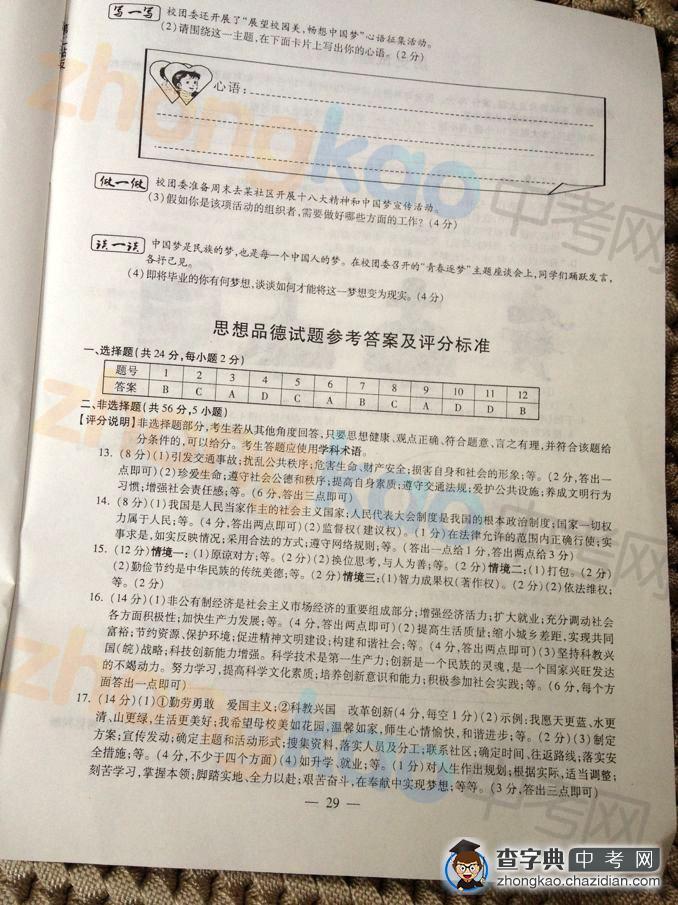 写一写 校团委还开展了“展望校园美,畅想中国梦”心语征集活动。
(2)请围绕这一主题,在下面卡片上写出你的心语。(2分)
心语:
做一做 校团委准备周末去某社区开展十八大精神和中国梦宣传活动。
(3)假如你是该项活动的组织者,需要做好哪些方面的工作?(4分)
谈一谈 中国梦是民族的梦,也是每一个中国人的梦。在校团委召开的“青春逐梦”主题座谈会上,同学们踊跃发言,
各抒己见。
(4)即将毕业的你有何梦想,谈谈如何才能将这一梦想变为现实。(4分)
思想品德试题参考答案及评分标准
一、选择题(共24分,每小题2分)
题号 1 2 3 4 5 6 7 8 9 10 11 12
答案 B C A D C A B C A D D B
二、非选择题(共56分,5小题)
【评分说明】非选择题部分,考生若从其他角度回答,只要思想健康、观点正确、符合题意、言之有理,并符合该题给
分条件的,可以给分。考生答题应使用学科术语。
13.(8分)(1)引发交通事故;扰乱公共秩序;危害生命、财产安全;损害自身和社会的形象;等。(2分,答出一
点即可)(2)珍爱生命;遵守社会公德和秩序;提高自身素质;遵守交通法规;爱护公共设施;养成文明行为
习惯;增强社会责任感;等。(6分,答出三点即可)
14.(8分)(1)我国是人民当家作主的社会主义国家;人民代表大会制度是我国的根本政治制度;国家一切权
力属于人民;等。(4分,答出两点即可)(2)监督权(建议权)。(1分)在法律允许的范围内正确行使;实
事求是,如实反映情况;采用合法的方式;遵守网络规则;等。(答出一点给1分,答出两点给3分)
15.(12分)情境一:(1)原谅对方;等。(2分)(2)换位思考,与人为善;等。(2分)情境二:(1)打包。(2分)
(2)勤俭节约是中华民族的传统美德;等。(2分)情境三:(1)智力成果权(著作权)。(2分)(2)依法维权;
等。(2分)
16.(14分)(1)非公有制经济是社会主义市场经济的重要组成部分;增强经济活力;扩大就业;充分调动社会
各方面积极性;加快生产力发展;等。(4分,答出两点即可)(2)提高生活质量;缩小城乡差距,实现共同
富裕;节约资源、保护环境;促进精神文明建设;构建和谐社会;等。(4分,答出两点即可)(3)坚持科教兴
国(皖)战略;科技创新能力增强。科学技术是第一生产力;创新是一个民族的灵魂,是一个国家兴旺发达
的不竭动力。努力学习,提高科学文化素质;培养创新意识和能力;积极参加社会实践;等。(6分,每个方
面答出一点即可)
17.(14分)(1)①勤劳勇敢 爱国主义;②科教兴国 改革创新(4分,每空1分)(2)示例:我愿天更蓝、水更
清、山更绿,生活更美好;我希望母校美如花园,温馨如家,师生心情愉快,和谐进步;等。(2分)(3)制定
方案;宣传发动;确定主题和活动形式;搜集资料,落实人员及分工;联系社区;确定时间、往返路线;落实安
全措施;等。(4分,不少于四个方面)(4)如升学、就业;等。(1分)对人生作出规划;根据实际,适当调整;
刻苦学习,掌握本领;脚踏实地、全力以赴;艰苦奋斗,在奉献中实现梦想;等等。(3分,答出三点即可)
— 29 —
zhongkao中考网
查字典中考网
zhongkao.chazidian.com